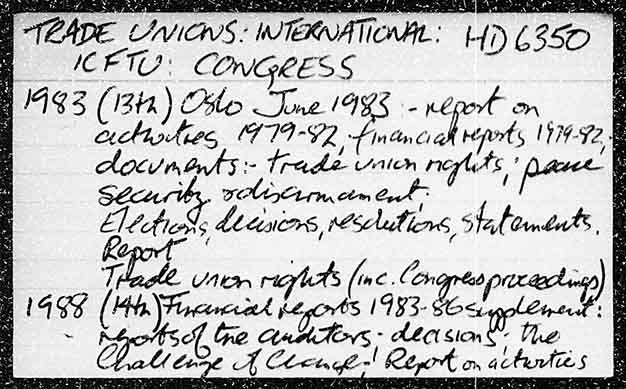 TRADE UNIONS: INTERNATIONAL: HD 6350
ICFTU: CONGRESS
1983 (13th) Oslo June 1983 :- report on
activities 1979-82; financial reports 1979-82;
documents:- trade union rights; peace
security & disarmament;
Elections, decisions, resolutions, statements.
Report
Trade union rights (inc. Congress proceedings)
1988 (14th) Financial reports 1983-86 supplement:
reports of the auditors - decisions - the
Challenge of Change; Report on activities